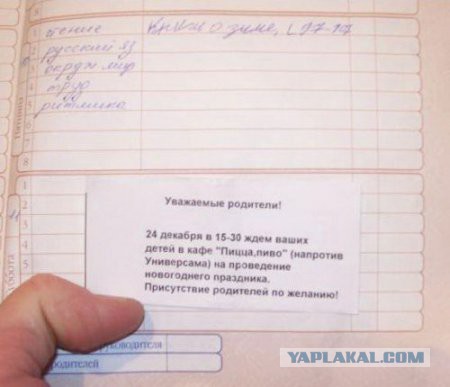 1 чтение Книги о зиме, с 97-
2 русский яз
3 окруж мир
4 труд
5 ритмика
6
7
8
Пятница
1
2
3
4
5
Уважаемые родители!
24 декабря в 15-30 ждем ваших
детей в кафе "Пицца,пиво" (напротив
Универсама) на проведение
новогоднего праздника.
Присутствие родителей по желанию!
руководителя
родителей
YAPLAKAL.COM